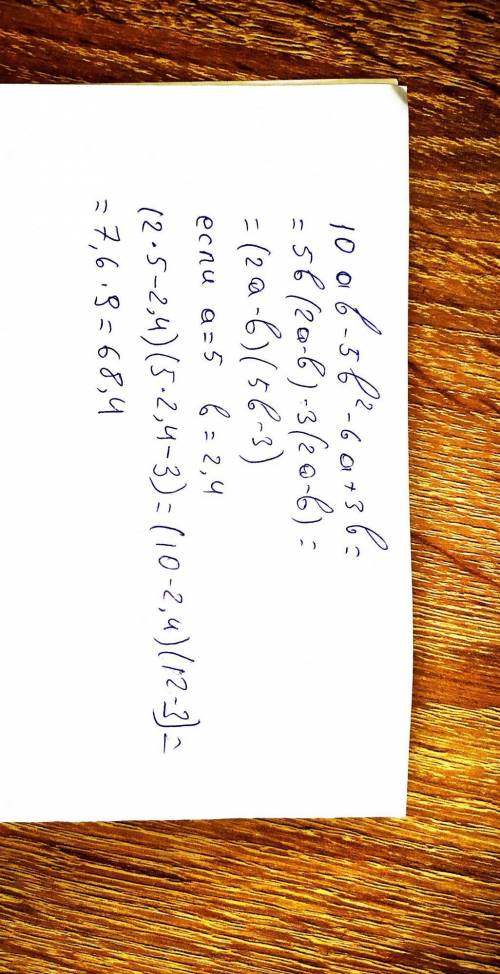 10ab-5b²-6a+3b=
=5b(2a-b)-3(2a-b)=
=(2a-b)(5b-3)
если a=5 b=2,4
(2·5-2,4)(5·2,4-3)=(10-2,4)(12-3)=
=7,6·9=68,4